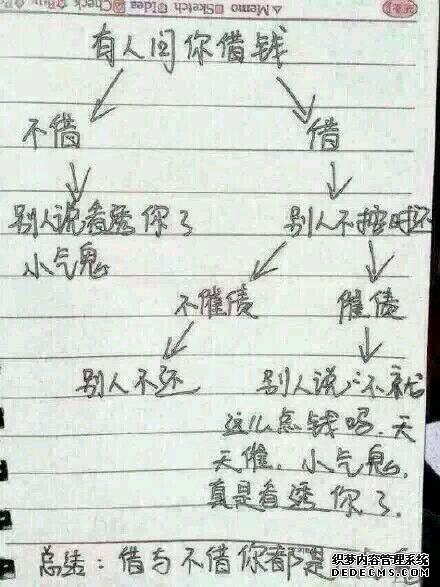 △Memo □Sketch □Idea □Check □Buy
有人问你借钱
不借 借
别人说看透你了 别人不按时还
小气鬼
不催债 催债
别人不还 别人说:不就
这么点钱吗.天
天催.小气鬼.
真是看透你了.
总结:借与不借你都是
织梦内容管理系统
DEDECMS.COM